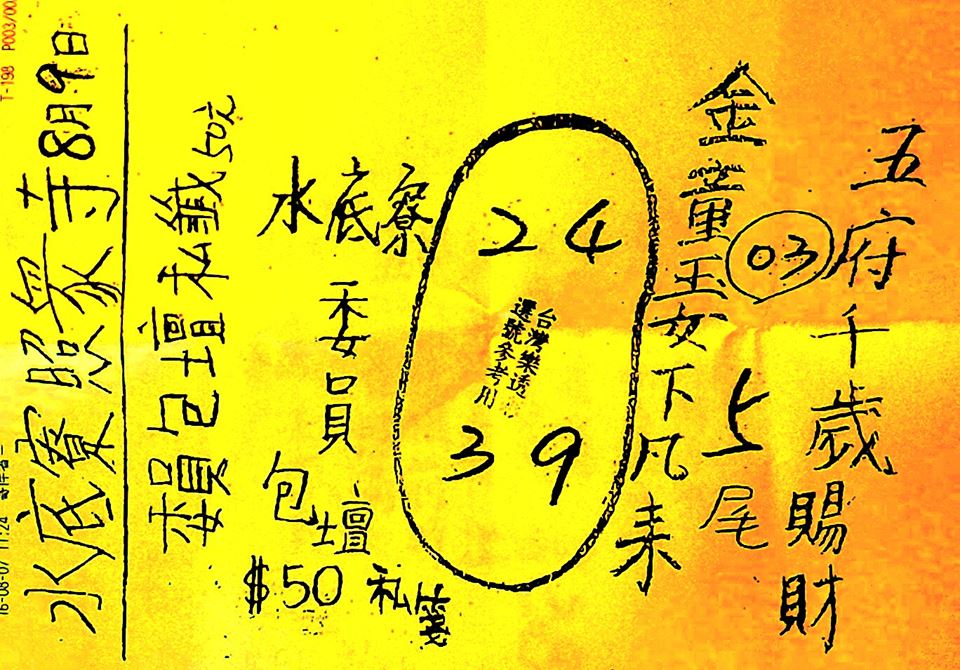 五府千歲賜財
03
5尾
金童玉女下凡来
24
台灣樂透
選號參考用
39
水底寮
委員
包壇
$50 私箋
委員包壇私籤50元
水底寮照眾寺8月9日
T-198 P003/00
16-08-07 11:24